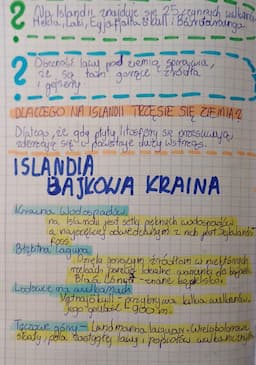 Na Islandii znajduje się 25 czynnych wulkanów
Hekla, Laki, Eyjafjalla i
Obecność lawy pod ziemią sprawia,
że są tam gorące źródła
i gejzery
DLACZEGO NA ISLANDII TRZĘSIE SIĘ ZIEMIA?
Dlatego, że gdy płyty litosfery się przesuwają,
zderzają się i powstaje duży wstrząs.
ISLANDIA
BAJKOWA KRAINA
Kraina Wodospadów
na Islandii jest setki pięknych wodospadów
a najczęściej odwiedzanym z nich jest
foss
Błękitna Laguna
Dzięki gorącym źródłom w niektórych
miejscach panują idealne warunki do kąpieli
znane kąpielisko
Lodowce na wulkanach
przykrywa kilka wulkanów,
jego grubość ~ 900 m
Tęczowe góry - Landmannalaugar - Wielokolorowe
skały, pola zastygłej lawy i popiołów wulkanicznych